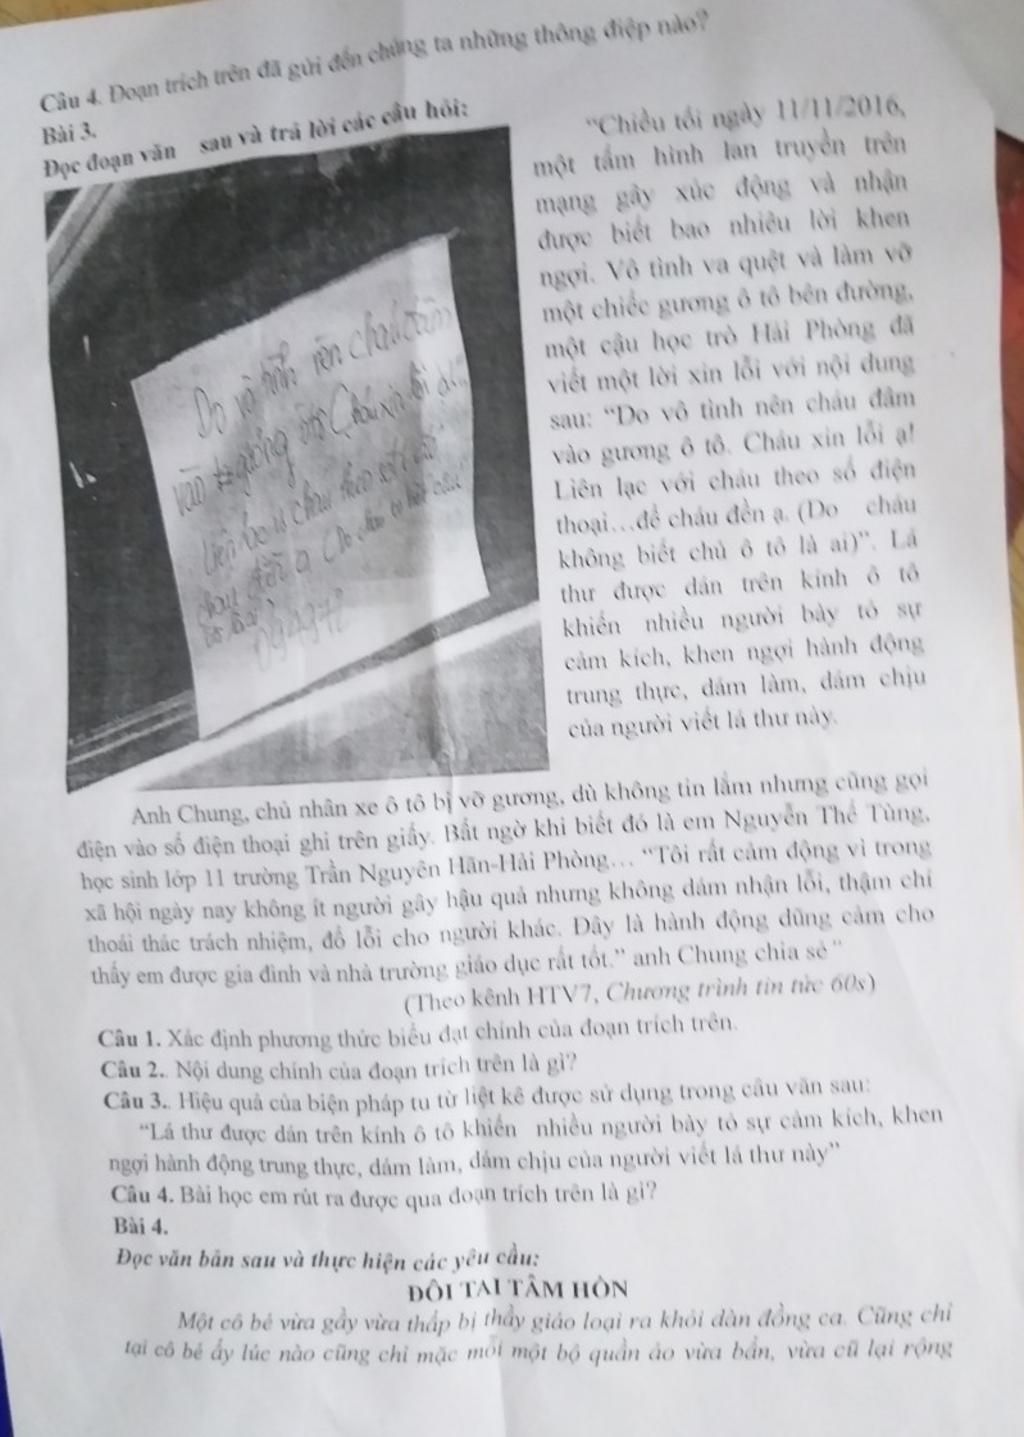 Câu 4. Đoạn trích trên đã gửi đến chúng ta những thông điệp nào?
Bài 3.
Đọc đoạn văn sau và trả lời các câu hỏi:
Do vô tình nên cháu đâm
vào gương ôtô Cháu xin lỗi ạ!
Liên lạc cháu theo số
cháu đền ạ (Do
"Chiều tối ngày 11/11/2016,
một tấm hình lan truyền trên
mạng gây xúc động và nhận
được biết bao nhiêu lời khen
ngợi. Vô tình va quệt và làm vỡ
một chiếc gương ô tô bên đường,
một cậu học trò Hải Phòng đã
viết một lời xin lỗi với nội dung
sau: "Do vô tình nên cháu đâm
vào gương ô tô. Cháu xin lỗi ạ!
Liên lạc với cháu theo số điện
thoại…để cháu đền ạ. (Do cháu
không biết chủ ô tô là ai)". Lá
thư được dán trên kính ô tô
khiến nhiều người bày tỏ sự
cảm kích, khen ngợi hành động
trung thực, dám làm, dám chịu
của người viết lá thư này.
Anh Chung, chủ nhân xe ô tô bị vỡ gương, dù không tin lắm nhưng cũng gọi
điện vào số điện thoại ghi trên giấy. Bất ngờ khi biết đó là em Nguyễn Thế Tùng,
học sinh lớp 11 trường Trần Nguyên Hãn-Hải Phòng… "Tôi rất cảm động vì trong
xã hội ngày nay không ít người gây hậu quả nhưng không dám nhận lỗi, thậm chí
thoái thác trách nhiệm, đổ lỗi cho người khác. Đây là hành động dũng cảm cho
thấy em được gia đình và nhà trường giáo dục rất tốt." anh Chung chia sẻ "
(Theo kênh HTV7, Chương trình tin tức 60s)
Câu 1. Xác định phương thức biểu đạt chính của đoạn trích trên.
Câu 2.. Nội dung chính của đoạn trích trên là gì?
Câu 3.. Hiệu quả của biện pháp tu từ liệt kê được sử dụng trong câu văn sau:
"Lá thư được dán trên kính ô tô khiến nhiều người bày tỏ sự cảm kích, khen
ngợi hành động trung thực, dám làm, dám chịu của người viết lá thư này"
Câu 4. Bài học em rút ra được qua đoạn trích trên là gì?
Bài 4.
Đọc văn bản sau và thực hiện các yêu cầu:
ĐÔI TAI TÂM HỒN
Một cô bé vừa gầy vừa thấp bị thầy giáo loại ra khỏi dàn đồng ca. Cũng chỉ
tại cô bé ấy lúc nào cũng chỉ mặc mỗi một bộ quần áo vừa bẩn, vừa cũ lại rộng